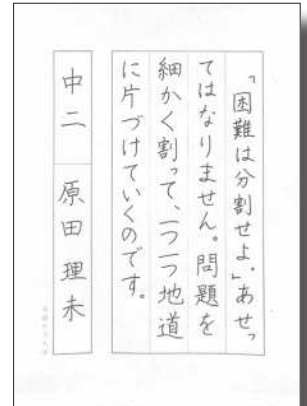 「困難は分割せよ。」あせっ
てはなりません。問題を
細かく割って、一つ一つ地道
に片づけていくのです。
中二 原田理未